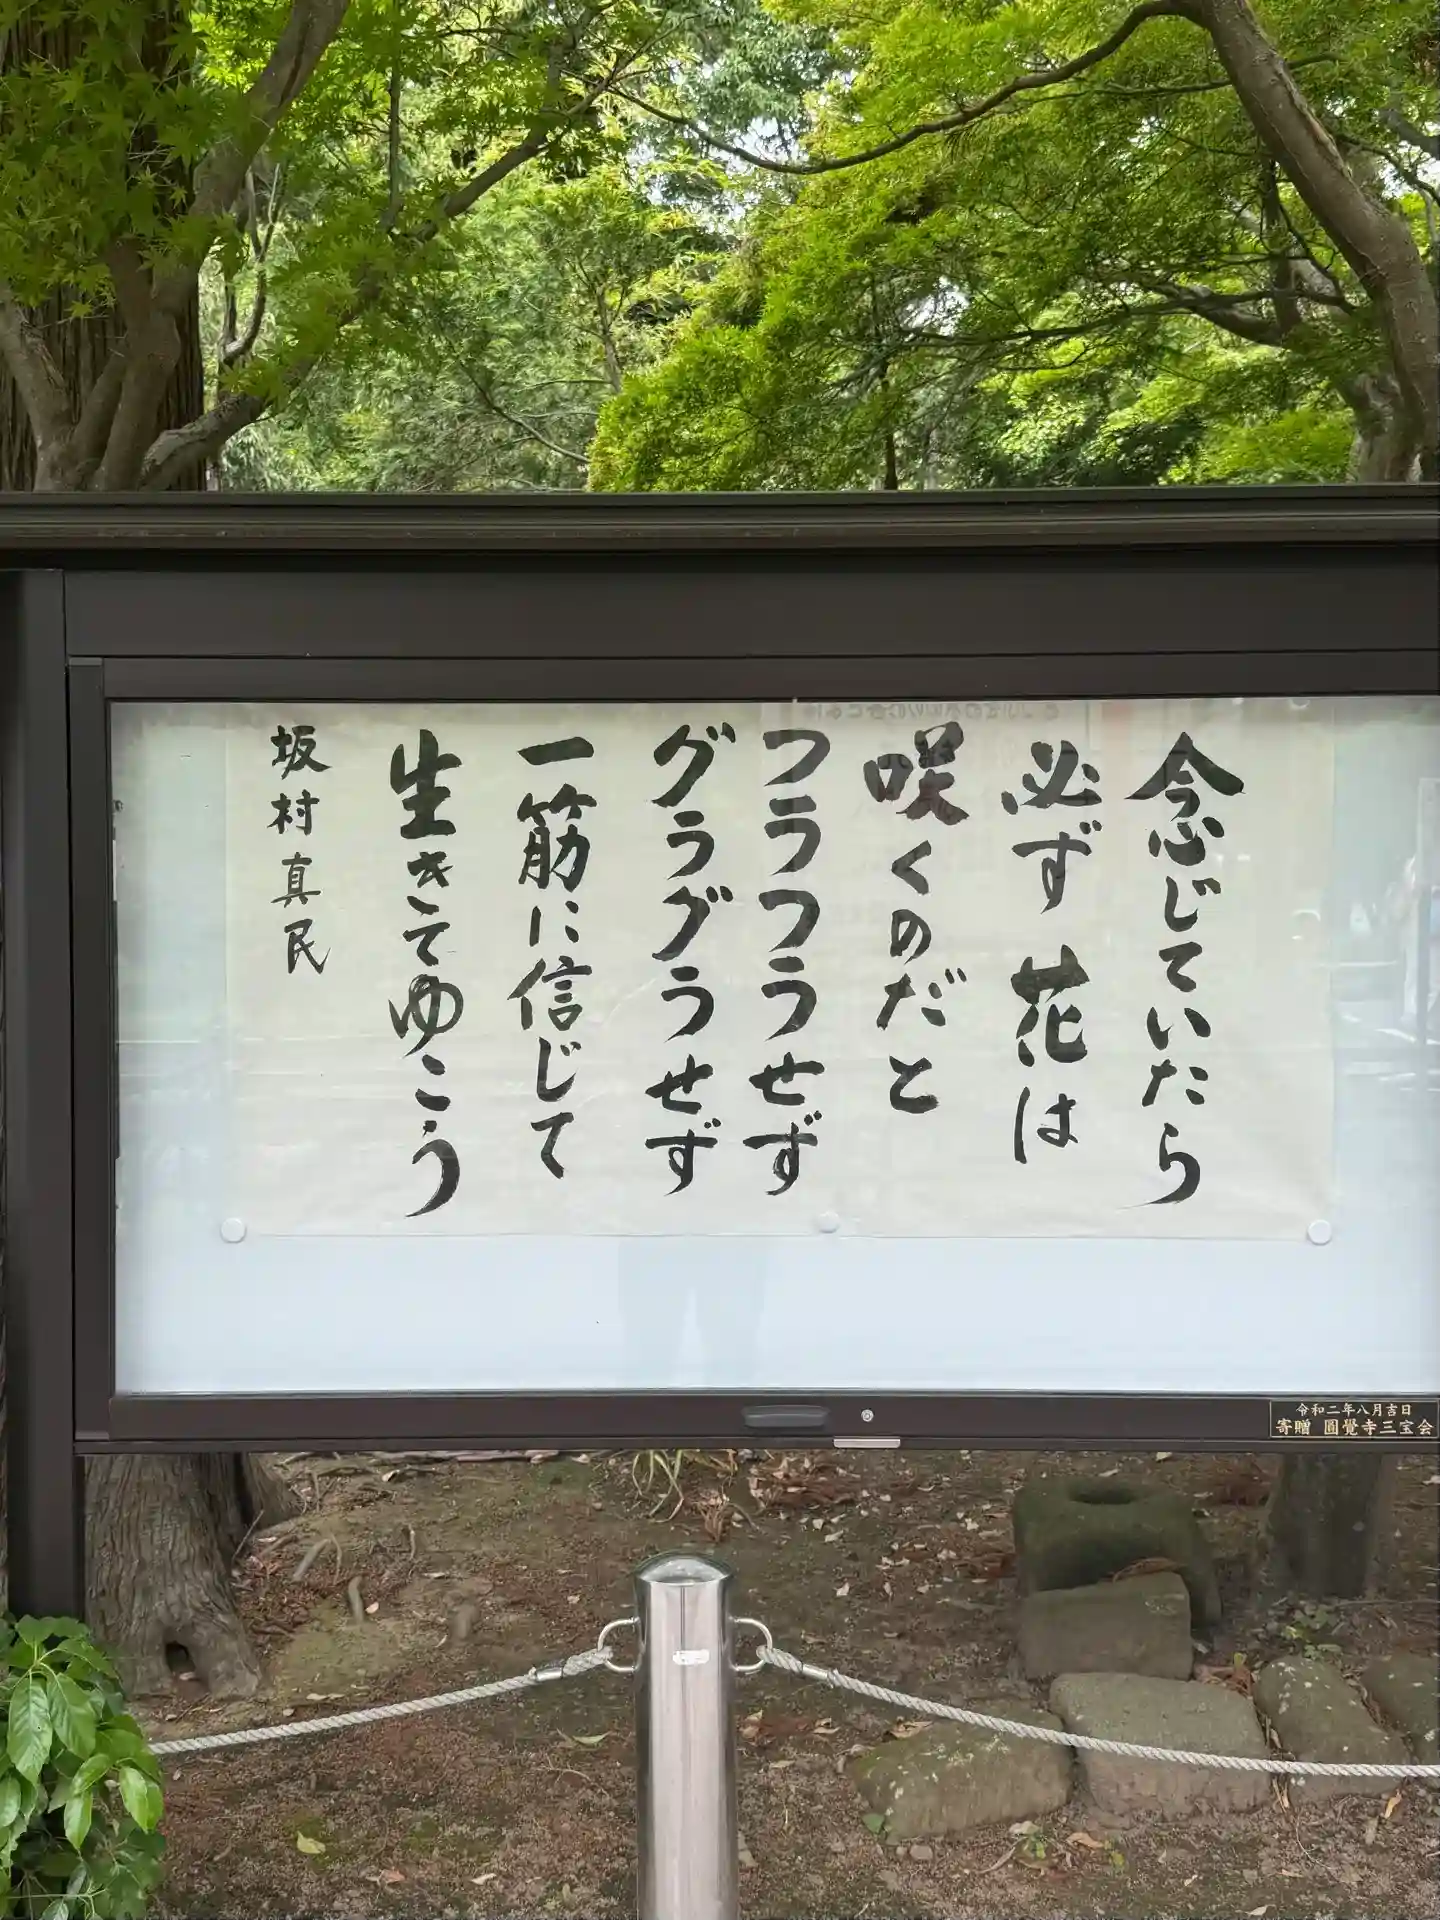 念じていたら
必ず 花は
咲くのだと
フラフラせず
グラグラせず
一筋に信じて
生きてゆこう
坂村真民
令和二年八月吉日
寄贈 圓覺寺三宝会